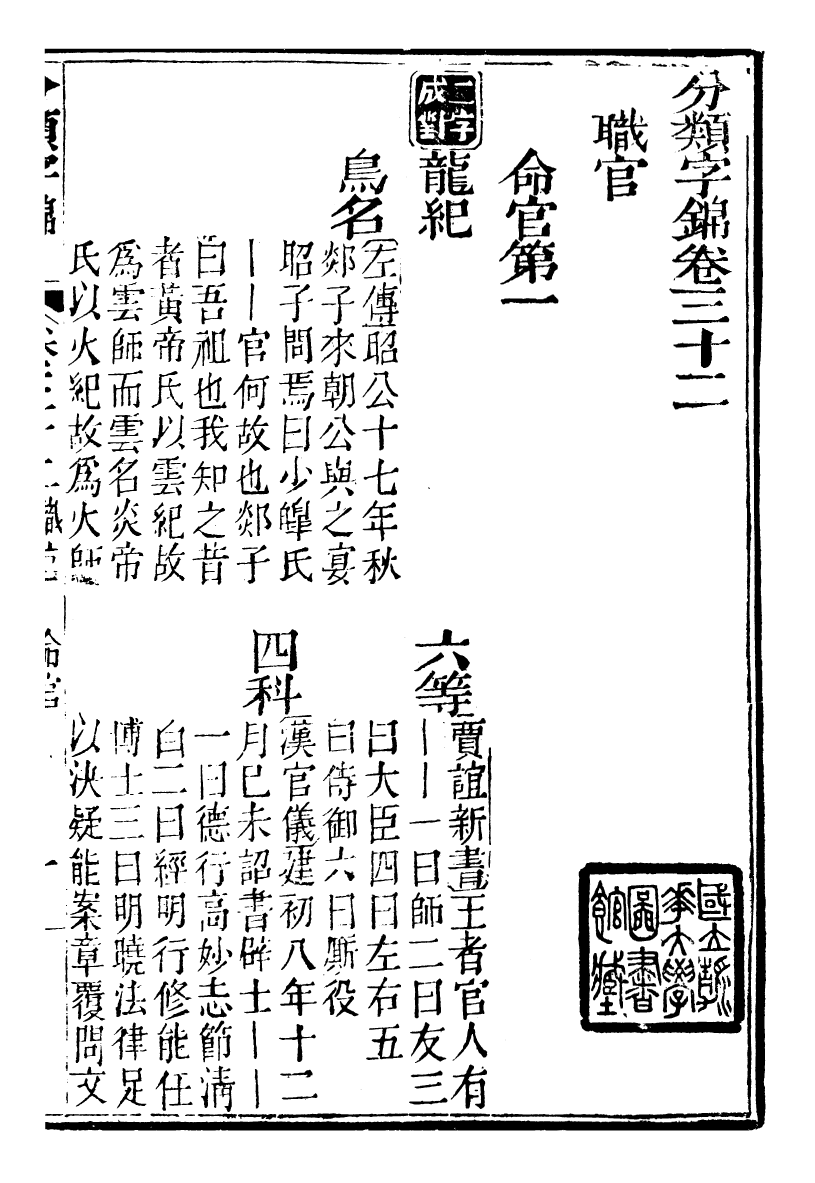 分類字錦卷三十二
職官
命官第一
二字
成對
龍紀
鳥名
左傳昭公十七年秋
郯子來朝公與之宴
昭子問焉曰少皥氏
丨丨官何故也郯子
曰吾祖也我知之昔
者黃帝氏以雲紀故
爲雲師而雲名炎帝
氏以火紀故爲火師
六等
賈誼新書王者官人有
丨丨一曰師二曰友三
曰大臣四曰左右五
曰侍御六曰厮役
四科
漢官儀建初八年十二
月巳未詔書辟士丨丨
一曰德行高妙志節淸
白二曰經明行修能任
博士三曰明曉法律足
以決疑能案章覆問文
類字錦 卷三十二職官 命官 一
國立清
華大學
圖書
館藏